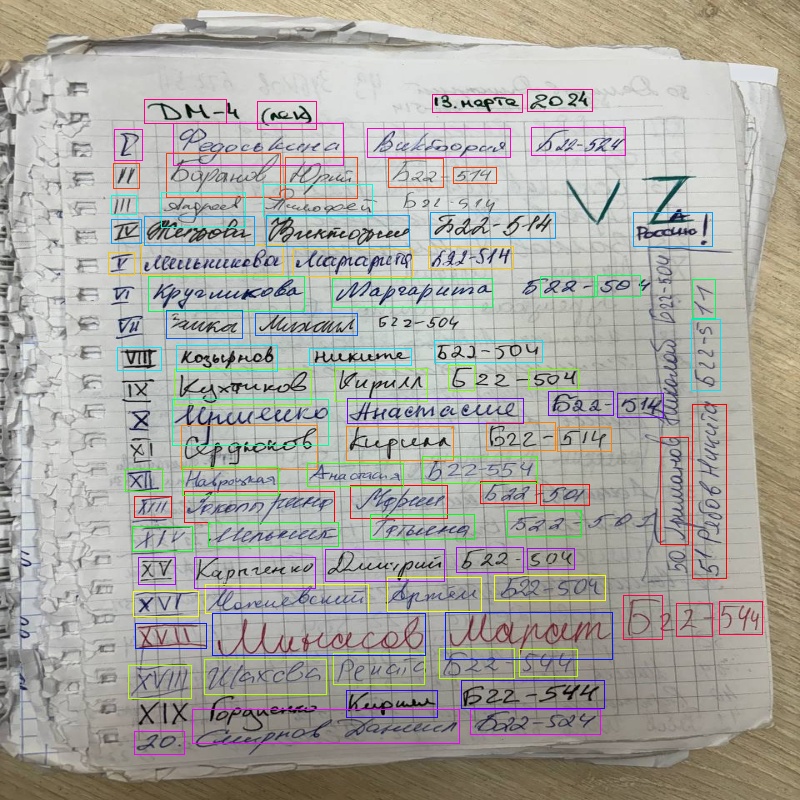 DM-4 (лек) 13. марта 2024
I Федоськина Виктория Б22-524
II Баранов Юрий Б22-514
III Андреев Тимофей Б22-514
IV Виктория Б22-514
V Мельникова Маргарита Б22-514
V Z
Россия!
VI Кругликова Маргарита Б22-504
VII Заика Михаил Б22-504
VIII Козырнов Никита Б22-504
IX Кухтиков Кирилл Б22-504
X Иршенко Анастасия Б22-514
XI Сердюков Кирилл Б22-514
XII Навроцкая Анастасия Б22-554
XIII Мария Б22-501
XIV Мельник Татьяна Б22-501
XV Карпченко Дмитрий Б22-504
XVI Можиевский Артём Б22-504
XVII Минасов Марат Б22-544
XVIII Шахова Рената Б22-544
XIX Гордиенко Кирилл Б22-544
20. Смирнов Даниил Б22-524
50 Николай Б22-504
51 Рябов Никита Б22-511